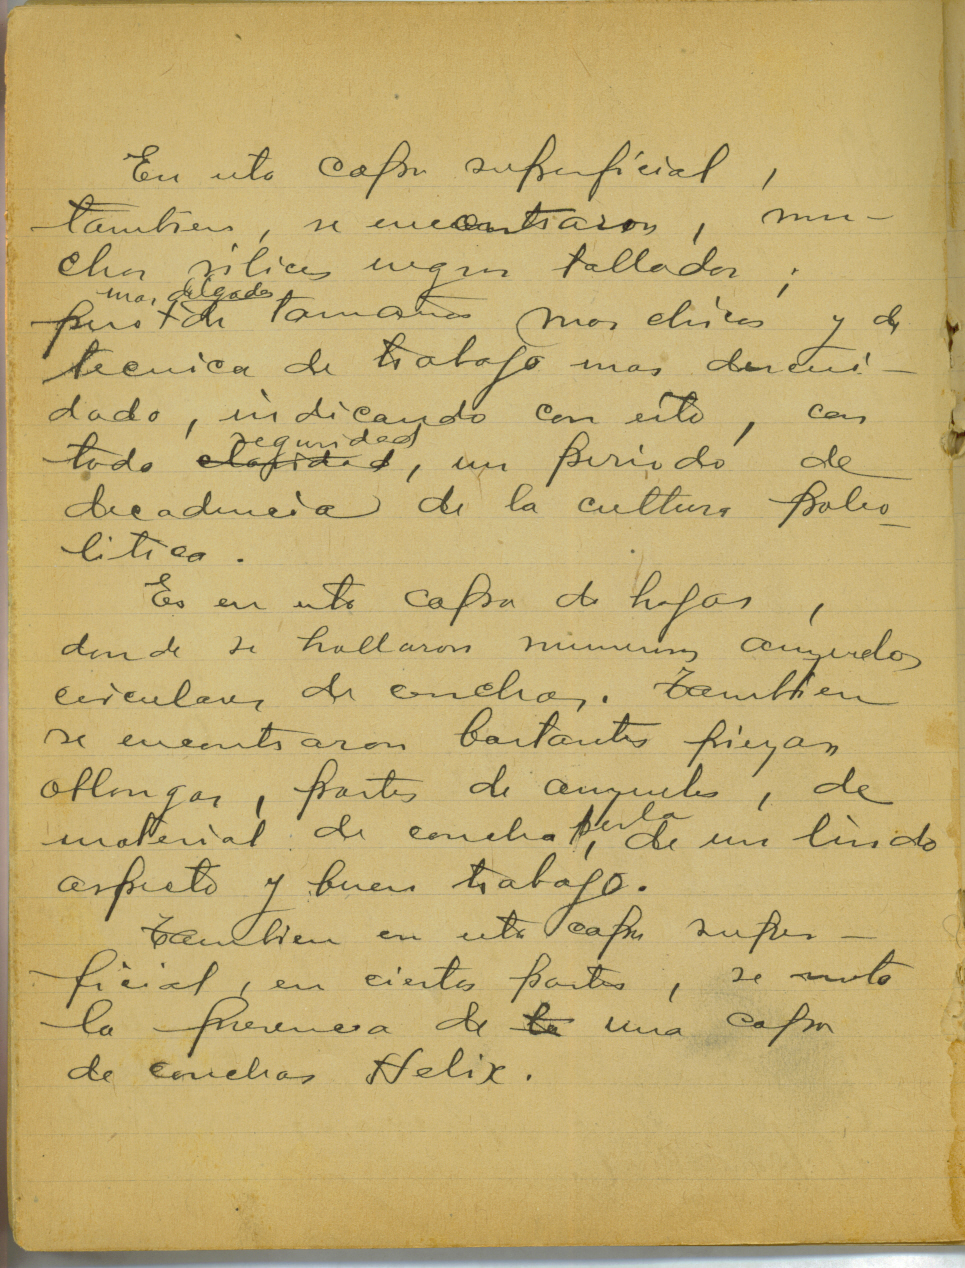 En esta capa superficial,
tambien, se encontraron, mu-
chos silices negros tallados,
mas delgados
pero + de tamaños mas chicos y de
tecnica de trabajo mas descui-
dado, indicando con esto, con
seguridad
todo claridad, un periodo de
decadencia de la cultura paleo-
litica.
Es en esta capa de hogar,
donde se hallaron numerosos anzuelos
circulares de conchas. Tambien
se encontraron bastantes piezas
oblongas, partes de anzuelos, de
perla
material de concha, de un lindo
aspecto y buen trabajo.
Tambien en esta capa super-
ficial, en ciertas partes, se nota
la presencia de la una capa
de conchas Helix.